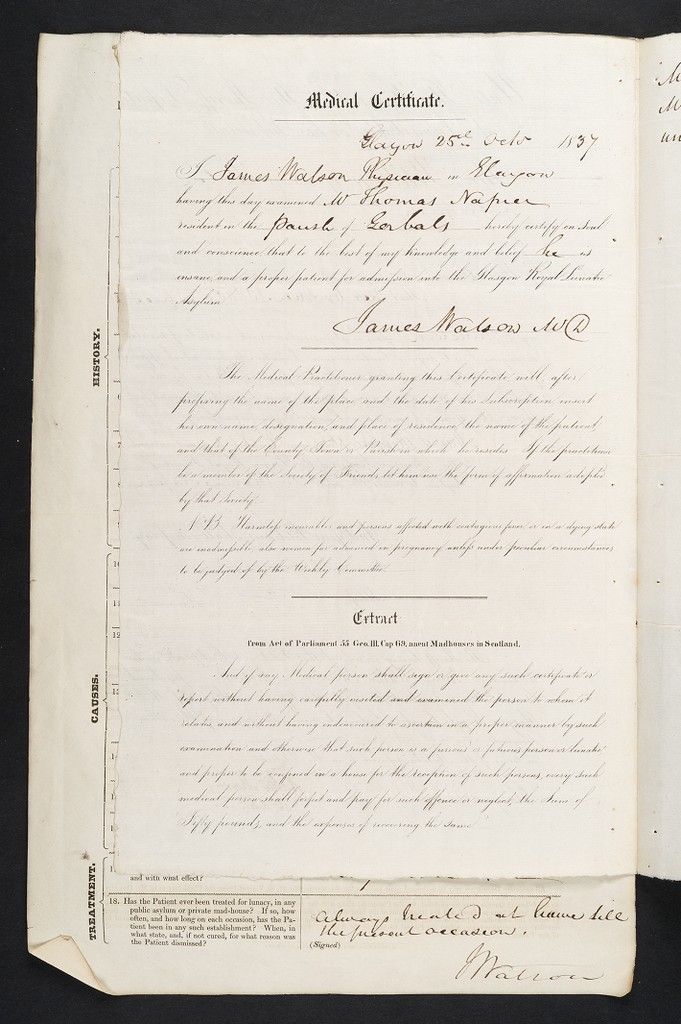 Medical Certificate.
Glasgow 25th Octr 1837
I, James Watson Physician in Glasgow
having this day examined Mr Thomas Napier
resident in the Parish of Gorbals hereby certify on soul
and conscience that to the best of my knowledge and belief he is
insane, and a proper patient for admission into the Glasgow Royal Lunatic
Asylum
James Watson MD
The Medical Practitioner granting this Certificate will, after
prefixing the name of the place and the date of his Subscription insert
his own name, designation, and place of residence, the name of the patient,
and that of the County Town or Parish in which he resides. If the practitioner
be a member of the Society of Friends, let him use the form of affirmation adopted
by that Society.
N.B. Harmless incurables and persons affected with contagious fever or in a dying state
are inadmissible, also women far advanced in pregnancy unless under peculiar circumstances
to be judged of by the Weekly Committee
Extract
from Act of Parliament 55 Geo. III. Cap 69, anent Madhouses in Scotland.
And if any Medical person shall sign or give any such certificate or
report without having carefully visited and examined the person to whom it
relates, and without having endeavoured to ascertain in a proper manner by such
examination and otherwise that such person is a furious or fatuous person or lunatic
and proper to be confined in a house for the reception of such persons, every such
medical person shall forfeit and pay for such offence or neglect, the Sum of
Fifty pounds, and the expenses of recovering the same
HISTORY.
CAUSES.
TREATMENT.
10
11
12
and with what effect?
18. Has the Patient ever been treated for lunacy, in any
public asylum or private mad-house? If so, how
often, and how long on each occasion, has the Pa-
tient been in any such establishment? When, in
what state, and, if not cured, for what reason was
the Patient dismissed?
always treated at home till
the present occasion.
(Signed)
J Watson